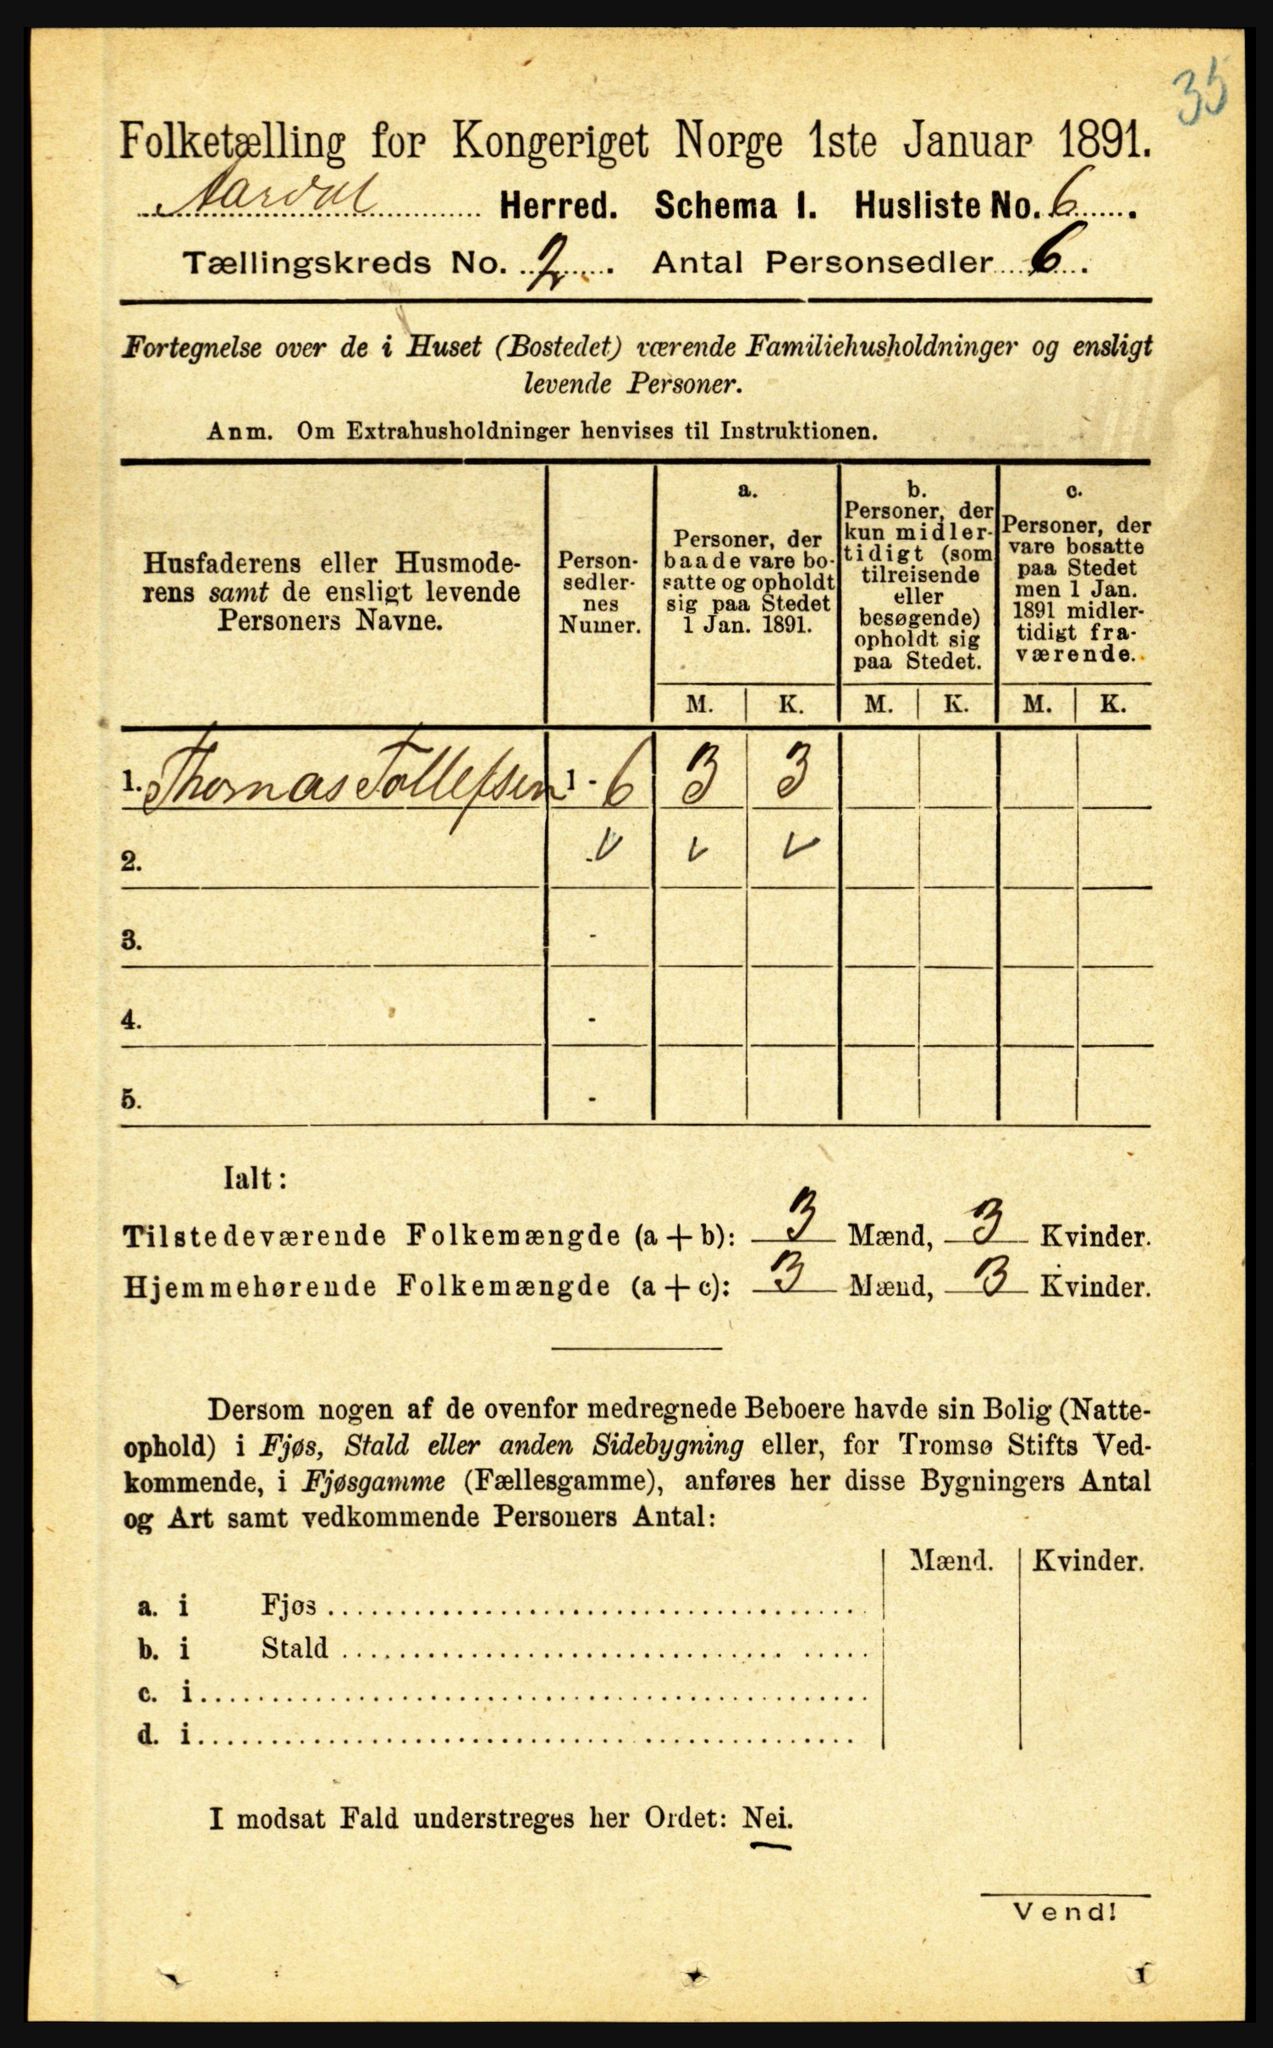 35
Folketælling for Kongeriget Norge 1ste Januar 1891.
Aardal Herred. Schema I. Husliste No. 6.
Tællingskreds No. 2. Antal Personsedler 6.
Fortegnelse over de i Huset (Bostedet) værende Familiehusholdninger og ensligt
levende Personer.
Anm. Om Extrahusholdninger henvises til Instruktionen.
Husfaderens eller Husmode-
rens samt de ensligt levende
Personers Navne.
Person-
sedler-
nes
Numer.
a.
Personer, der
baade vare bo-
satte og opholdt
sig paa Stedet
1 Jan. 1891.
b.
Personer, der
kun midler-
tidigt (som
tilreisende
eller
besøgende)
opholdt sig
paa Stedet.
c.
Personer, der
vare bosatte
paa Stedet
men 1 Jan.
1891 midler-
tidigt fra-
værende.
M. K. M. K. M. K.
1. Thomas Tollefsen 1 - 6 3 3
2. -
3. -
4. -
5. -
Ialt:
Tilstedeværende Folkemængde (a + b): 3 Mænd, 3 Kvinder.
Hjemmehørende Folkemængde (a + c): 3 Mænd, 3 Kvinder.
Dersom nogen af de ovenfor medregnede Beboere havde sin Bolig (Natte-
ophold) i Fjøs, Stald eller anden Sidebygning eller, for Tromsø Stifts Ved-
kommende, i Fjøsgamme (Fællesgamme), anføres her disse Bygningers Antal
og Art samt vedkommende Personers Antal:
Mænd. Kvinder.
a. i Fjøs
b. i Stald
c. i
d. i
I modsat Fald understreges her Ordet: Nei.
Vend!
1